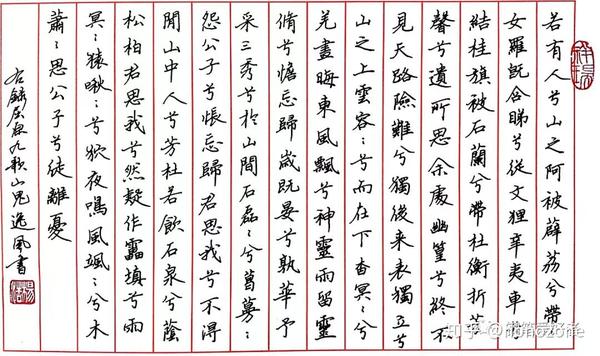 若有人兮山之阿被薜荔兮帶
女羅既含睇兮從文狸辛夷車
結桂旗被石蘭兮帶杜衡折芳
馨兮遺所思余處幽篁兮終不
見天路險難兮獨後來表獨立兮
山之上雲容〻兮而在下杳冥〻兮
羌晝晦東風飄兮神靈雨留靈
脩兮憺忘歸歲既晏兮孰華予
采三秀兮於山間石磊〻兮葛蔓〻
怨公子兮悵忘歸君思我兮不得
閒山中人兮芳杜若飲石泉兮蔭
松柏君思我兮然疑作靁填兮雨
冥〻猿啾〻兮狖夜鳴風颯〻兮木
蕭〻思公子兮徒離憂
右錄屈原九歌山鬼逸風書
知乎